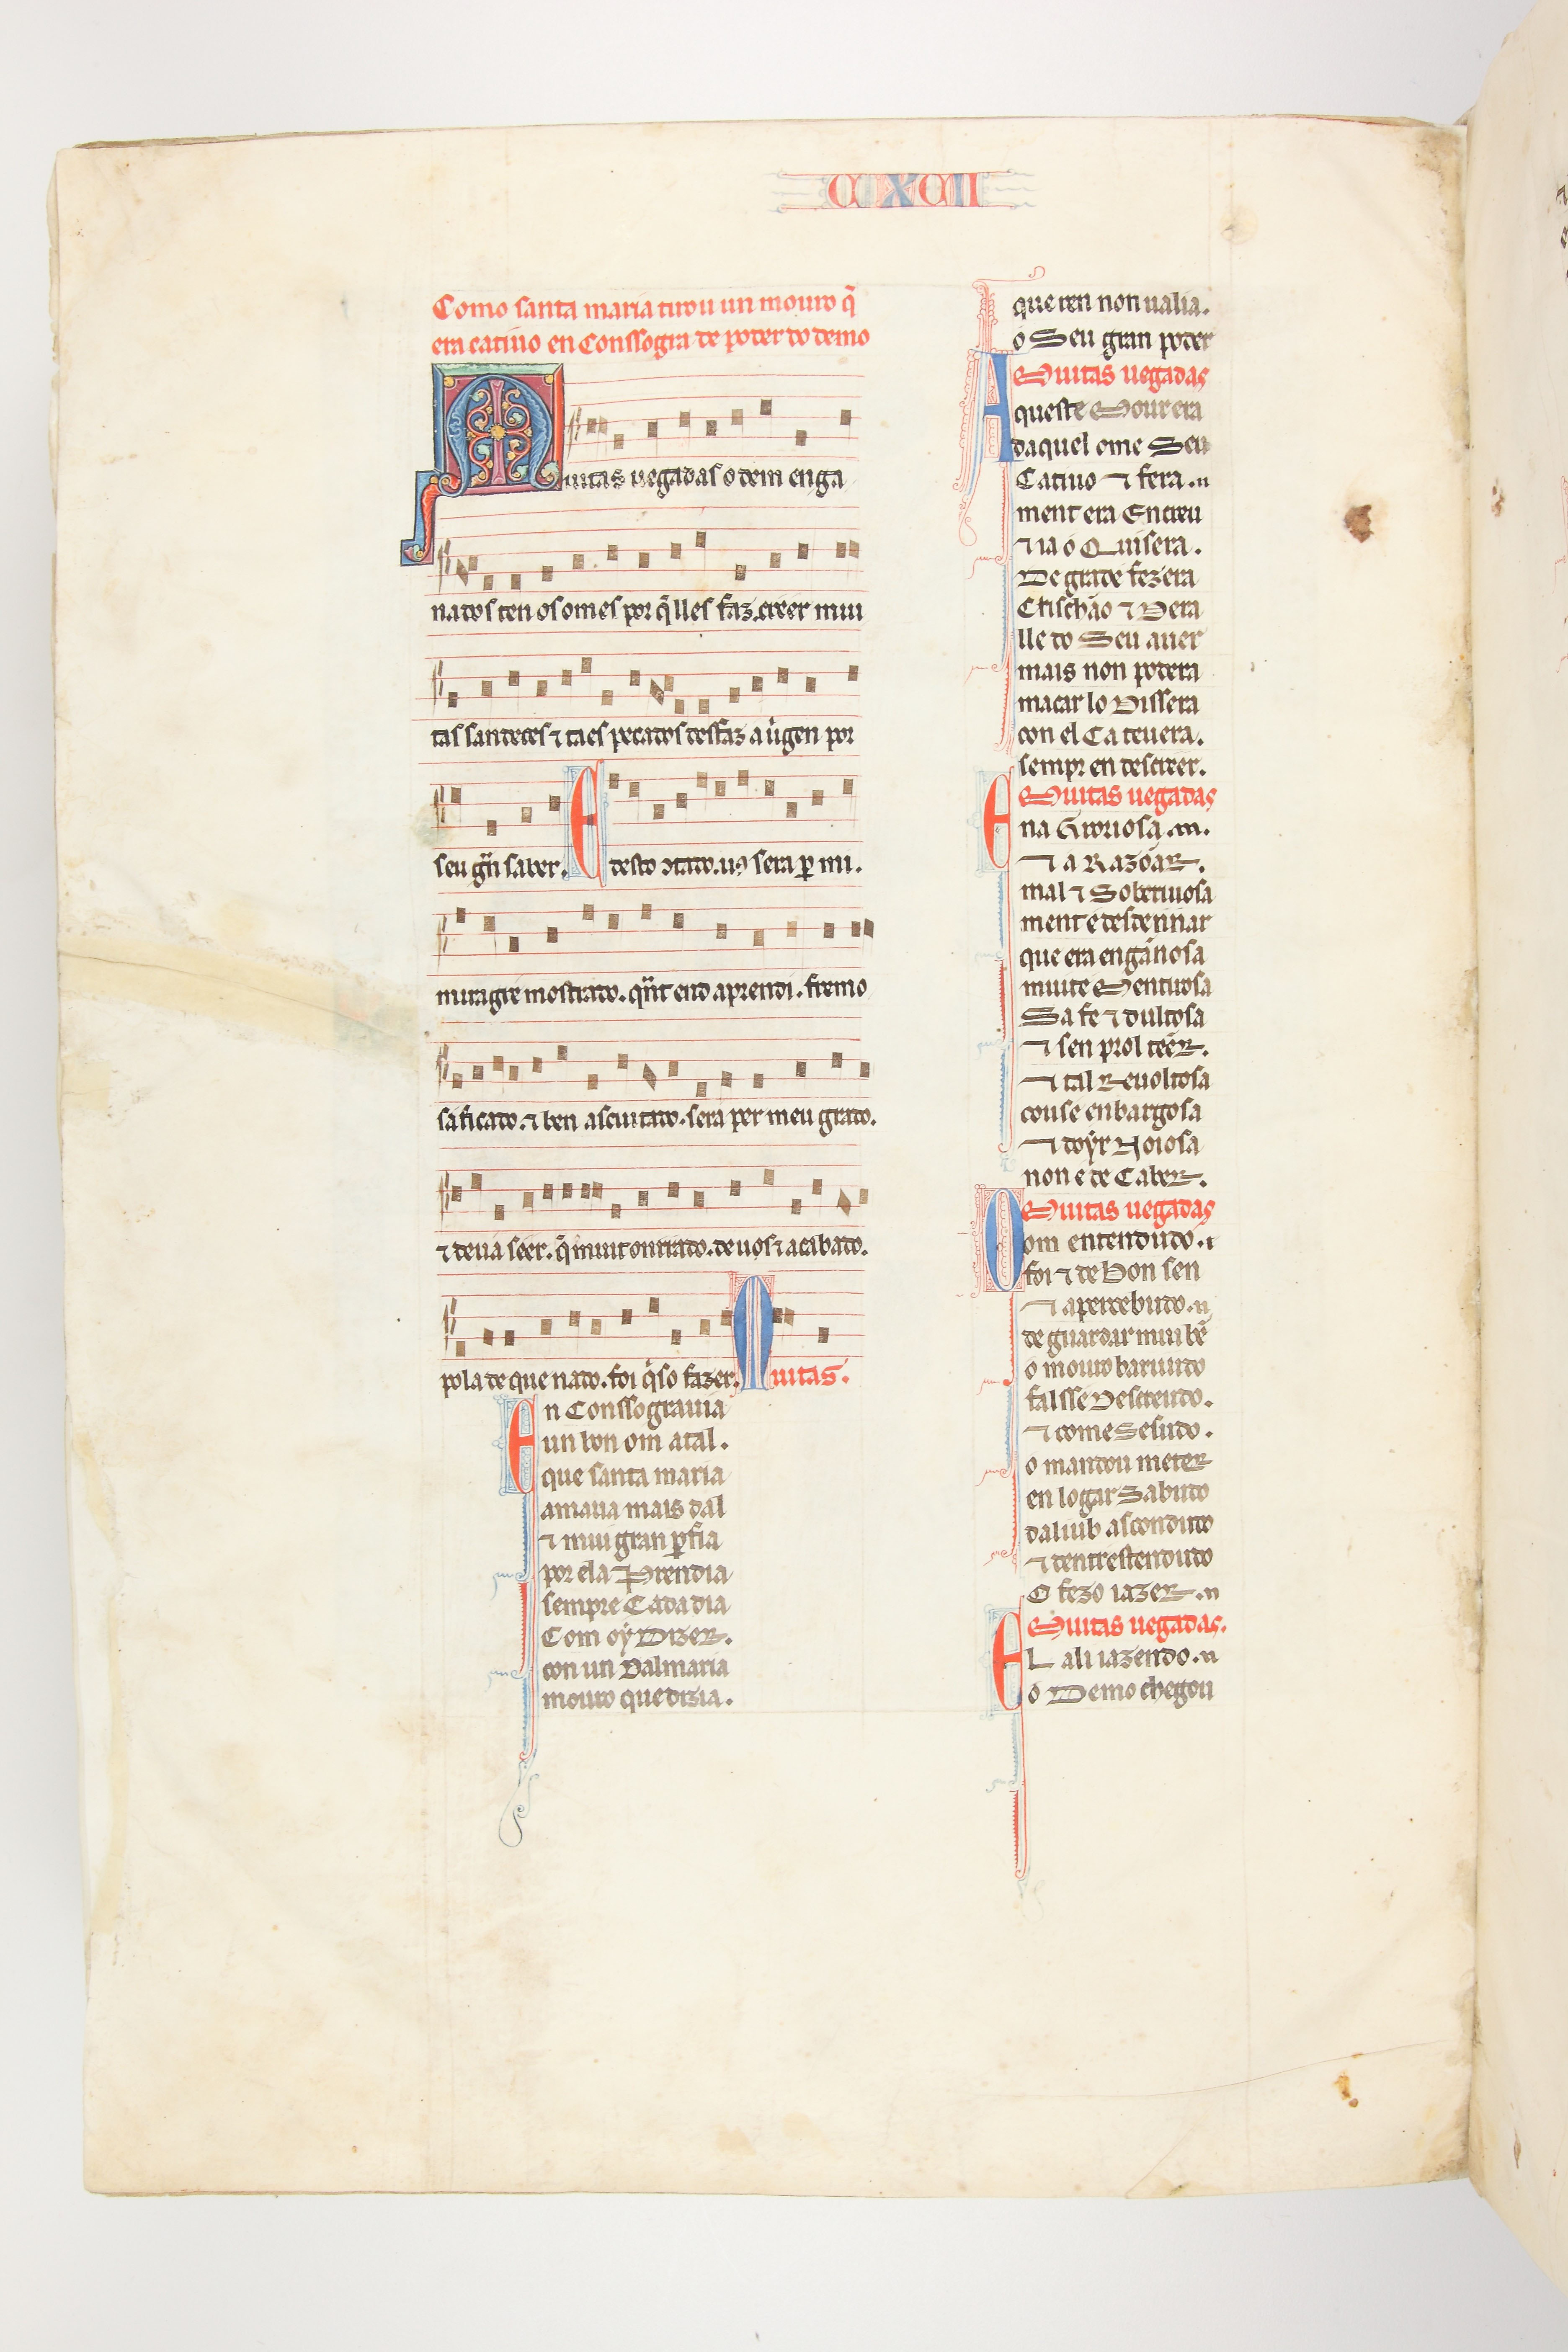 CLXCII
Como santa maria tirou un mouro q̃
era catiuo en Conssogra de poder do demo
Muitas uegadas o dem enga
nados ten os omes por q̃ lles faz. creer mui
tas sandeces ⁊ taes pecados desfaz a uirgen por
seu grã saber. E desto ꝯtado. uꝯ sera ꝑ mi.
miragre mostrado. quãt end aprendi. fremo
saficado. ⁊ ben ascuitado. sera per meu grado.
⁊ deua séer. q̃ muit onrrado. de uos ⁊ acabado.
pola de que nado. foi q̃so fazer. Muitas.
En Conssograuia
un bon om atal.
que santa maria
amaua mais dal
⁊ mui gran ꝑfia
por ela Prendia
sempre Cada dia
Com oý Dizer.
con un Dalmaria
mouro que dizia.
que ren non ualia.
o Seu gran poder
Muitas uegadas
Aqueste Mour era
daquel ome Seu
Catiuo ⁊ fera.
ment era Encreu
⁊ ia o Quisera.
De grade fezera
Chischão ⁊ Dera
lle do Seu auer
mais non podera
macar lo Dissera
con el Ca teuera.
sempr en descreer.
Muitas uegadas
Ena Groriosa.
⁊ a Razóar.
mal ⁊ Soberuiosa
ment e desdennar
que era enganosa
muit e Mentirosa
Sa fe ⁊ duldosa
⁊ sen prol téer.
⁊ tal Reuoltosa
cous e enbargosa
⁊ doýr Noiosa
non e de Caber.
Muitas uegadas
Om entendudo.
foi ⁊ de Bon sen
⁊ apercebudo.
de guardar mui bẽ
o mouro baruudo
falsse Descreudo.
⁊ come Sesudo.
o mandou meter
en logar Sabudo
daliub ascondudo
⁊ dentr estendudo
O fezo iazer.
Muitas uegadas.
EL ali iazendo.
o Demo chegou